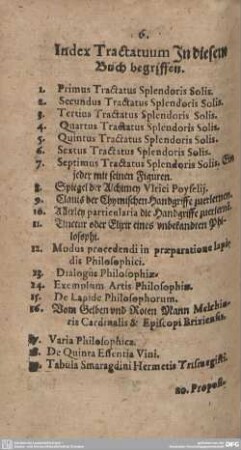 6.
Index Tractatuum Jn diesem
Buch begriffen.
1. Primus Tractatus Splendoris Solis.
2. Secundus Tractatus Splendoris Solis.
3. Tertius Tractatus Splendoris Solis.
4. Quartus Tractatus Splendoris Solis.
5. Quintus Tractatus Splendoris Solis.
6. Sextus Tractatus Splendoris Solis.
7. Septimus Tractatus Splendoris Solis. Ein
jeder mit seinen Figuren.
8. Spiegel der Alchimey Vlrici Poyselij.
9. Clauis der Chymischen Handgriffe zuerlernen.
10. Allerley particularia die Handgriffe zuerlernẽ.
11. Tinctur oder Elixir eines vnbekandten Phi-
losophi.
12. Modus procedendi in præparatione lapi-
dis Philosophici.
13. Dialogus Philosophiæ.
24. Exemplum Artis Philosophiæ.
15. De Lapide Philosophorum.
16. Vom Gelben vnd Roten Mann Melchio-
ris Cardinalis & Episcopi Brixiensis.
17. Varia Philosophica.
18. De Quinta Essentia Vini.
19. Tabula Smaragdini Hermetis Trismegisti.
20. Proposi-